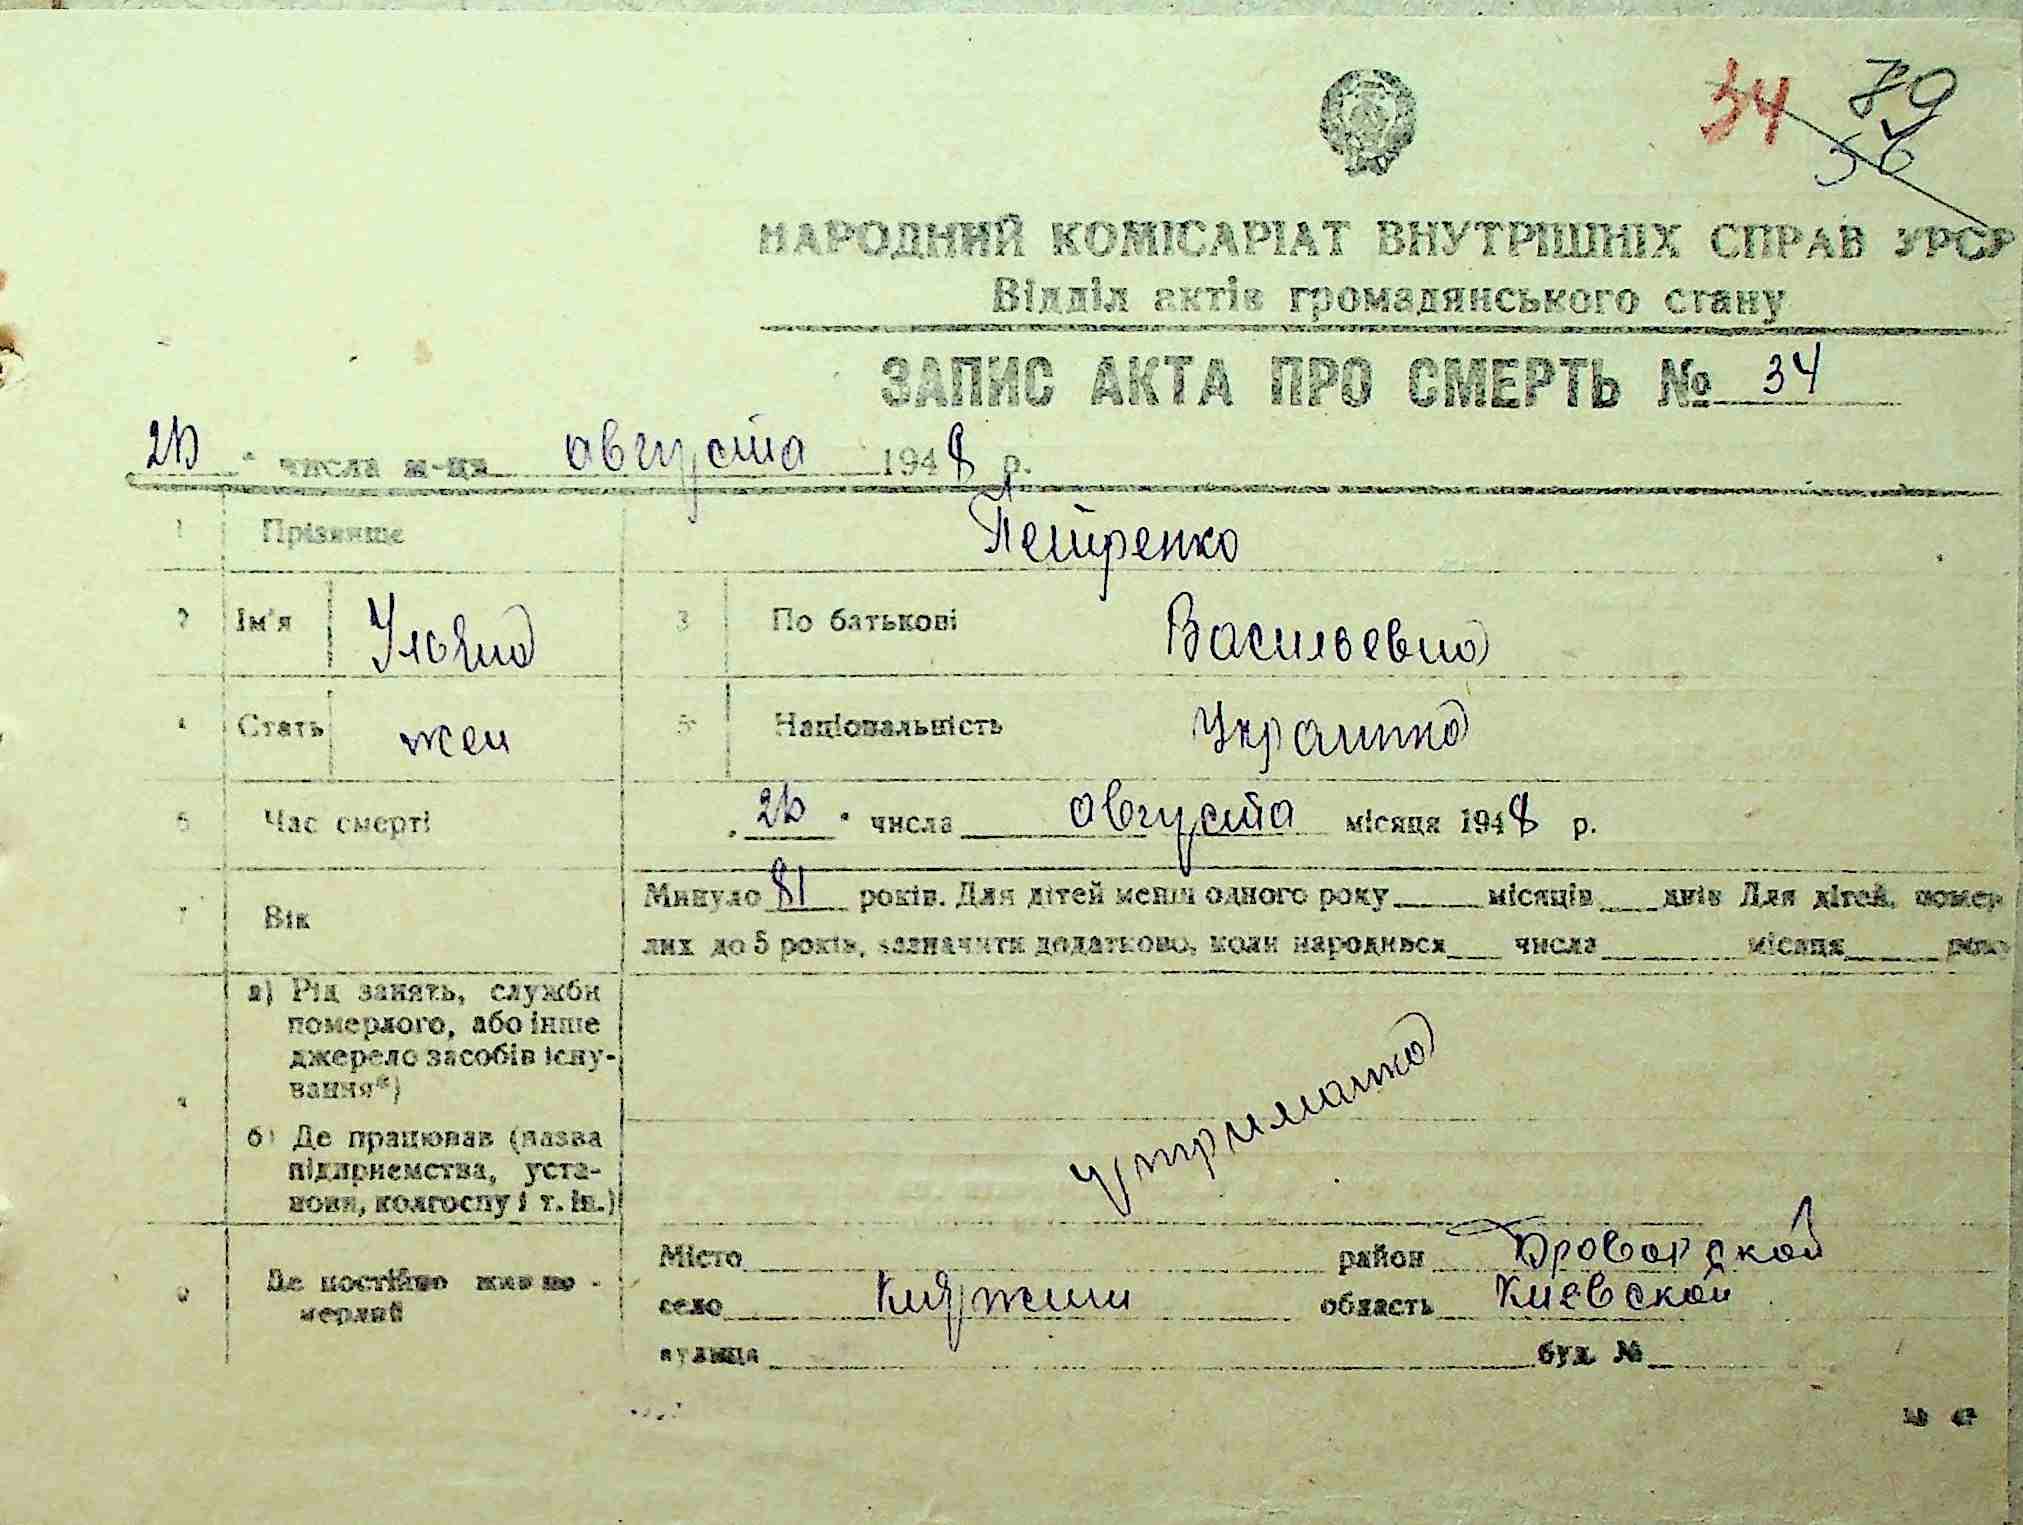 34 79
56
НАРОДНИЙ КОМІСАРІАТ ВНУТРІШНІХ СПРАВ УРСР
Відділ актів громадянського стану
ЗАПИС АКТА ПРО СМЕРТЬ № 34
числа м-ця августа 1948 р.
1 Прізвище Петренко
2 Ім'я Ульяна 3 По батькові Васильевна
4 Стать жен 5 Національність Украинка
6 Час смерті числа августа місяця 1948 р.
7 Вік Минуло 81 років. Для дітей менш одного року місяців днів Для дітей, помер
лих до 5 років, зазначити додатково, коли народився числа місяця року
а) Рід занять, служби
померлого, або інше
джерело засобів існу-
вання*)
утриманка
б) Де працював (назва
підприємства, уста-
нови, колгоспу і т. ін.)
9 Де постійно жив по-
мерлий
Місто район Броварской
село Княжичи область Киевской
вулиця буд. №